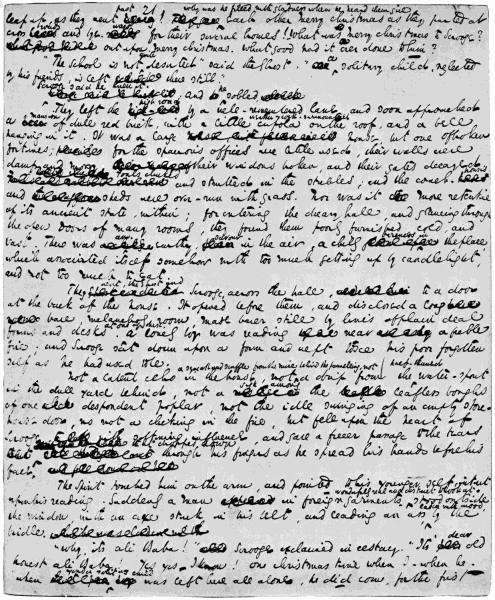 21
past why was he filled with gladness when he heard them give
leap up as they went each other merry christmas as they parted at
cross and bye ways for their several homes! What was merry christmas to Scrooge?
out upon merry christmas. What good had it ever done to him?
"The school is not quite deserted" said the Ghost. "A solitary child, neglected
by his friends, is left there still."
Scrooge said he knew it. and he sobbed
They left the high road by a well-remembered lane, and soon approached
a mansion of dull red brick, with a little weathercock-surmounted cupola on the roof, and a bell
hanging in it. It was a large house, but one of broken
fortunes; for the spacious offices were little used, their walls were
damp and mossy, their windows broken, and their gates decayed.
Fowls clucked and strutted in the stables; and the coach-houses
and sheds were over-run with grass. Nor was it more retentive
of its ancient state within; for entering the dreary hall, and glancing through
the open doors of many rooms, they found them poorly furnished, cold, and
vast. There was an earthy savour in the air, a chilly bareness in the place
which associated itself somehow with too much getting up by candlelight
and not too much to eat.
They went, the Ghost and Scrooge, across the hall, to a door
at the back of the house. It opened before them, and disclosed a long
bare, melancholy room, made barer still by lines of plain deal
forms and desks. At one of these a lonely boy was reading near a feeble
fire; and Scrooge sat down upon a form and wept to see his poor forgotten
self as he had used to be.
Not a latent echo in the house, not a squeak and scuffle from the mice behind the panelling, not a drip from the half-thawed water-spout
in the dull yard behind, not a sigh among the leafless boughs
of one despondent poplar, not the idle swinging of an empty store-
house door, no not a clicking in the fire, but fell upon the heart of
Scrooge with softening influence, and gave a freer passage to his tears
through his fingers as he spread his hands before his
face.
The Spirit touched him on the arm, and pointed to his younger self, intent
upon his reading. Suddenly a man in foreign garments: wonderfully real and distinct to look at: stood outside
the window, with an axe stuck in his belt, and leading an ass laden with wood by the
bridle.
"Why, it's Ali Baba!" Scrooge exclaimed in ecstacy. "It's dear old
honest Ali Baba! Yes, yes, I know! One christmas time when - when
yonder solitary child was left here all alone, he did come, for the first